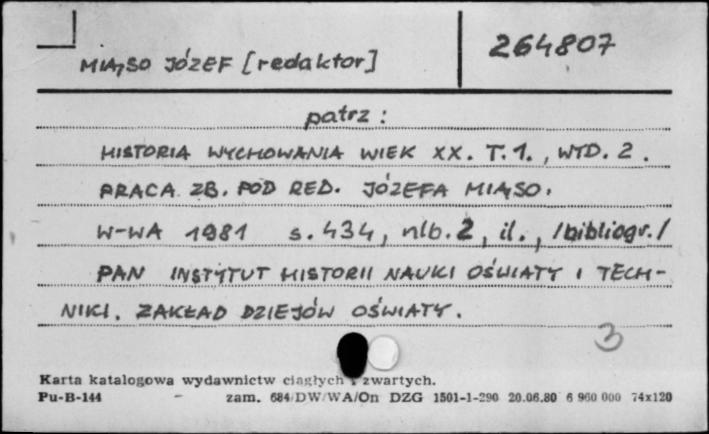 MIĄSO JÓZEF [redaktor]
264807
patrz :
HISTORIA WYCHOWANIA WIEK XX. T.1., WYD. 2.
PRACA ZB. POD RED. JÓZEFA MIĄSO.
W-WA 1981 s. 434, nlb. 2, il., /bibliogr./
PAN INSTYTUT HISTORII NAUKI OŚWIATY I TECH-
NIKI. ZAKŁAD DZIEJÓW OŚWIATY.
3
Karta katalogowa wydawnictw ciągłych i zwartych.
Pu-B-144 zam. 684/DW/WA/On DZG 1501-1-290 20.06.80 6 960 000 74x120